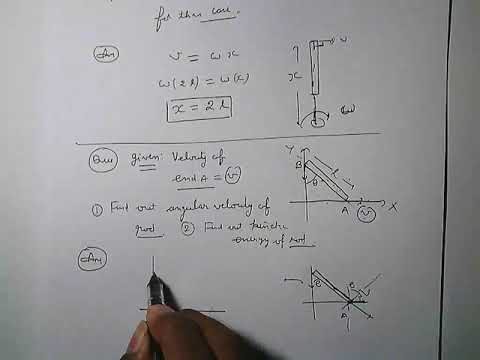 for this case.
Ans
v = ωx
ω(2l) = ω(x)
x = 2l
v
x
ω
Ques given: Velocity of
end A = v
Y
B
θ
l
A
v
X
① Find out angular velocity of
rod
② Find out kinetic
energy of rod
Ans
θ
θ
v
A